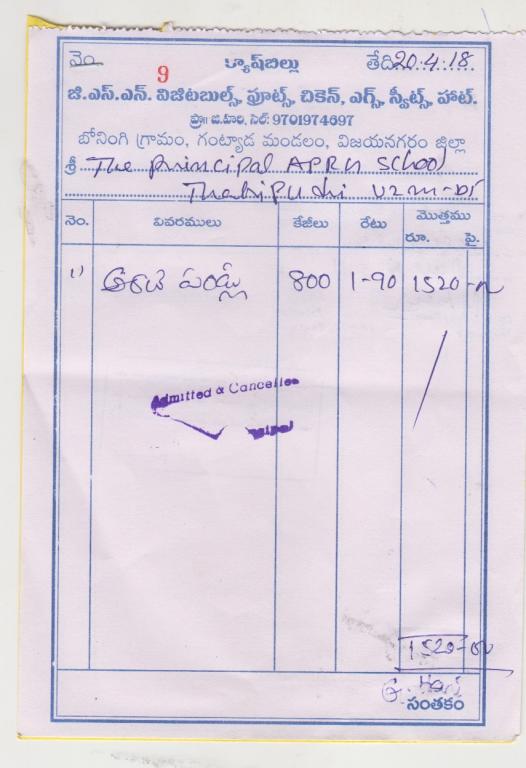 నెం. 9 క్యాష్‌బిల్లు తేది 20.4.18
జి.ఎస్.ఎన్. విజిటబుల్స్, ఫ్రూట్స్, చికెన్, ఎగ్స్, స్వీట్స్, హాట్.
ప్రొ॥ జి.హరి, సెల్: 9701974697
బోనింగి గ్రామం, గంట్యాడ మండలం, విజయనగరం జిల్లా
శ్రీ The principal APRU School
Thatipudi vzm-Dt
నెం. వివరములు కేజీలు రేటు మొత్తము
రూ. పై.
1) అరటి పండ్లు 800 1-90 1520-00
Admitted & Cancelled
1520-00
G. Hari
సంతకం